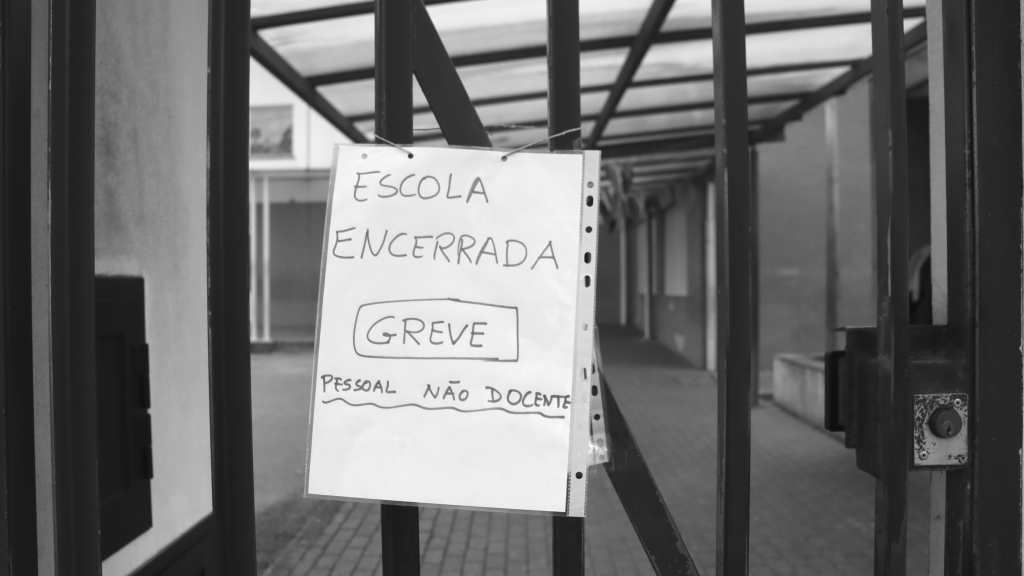 ESCOLA
ENCERRADA
GREVE
PESSOAL NÃO DOCENTE